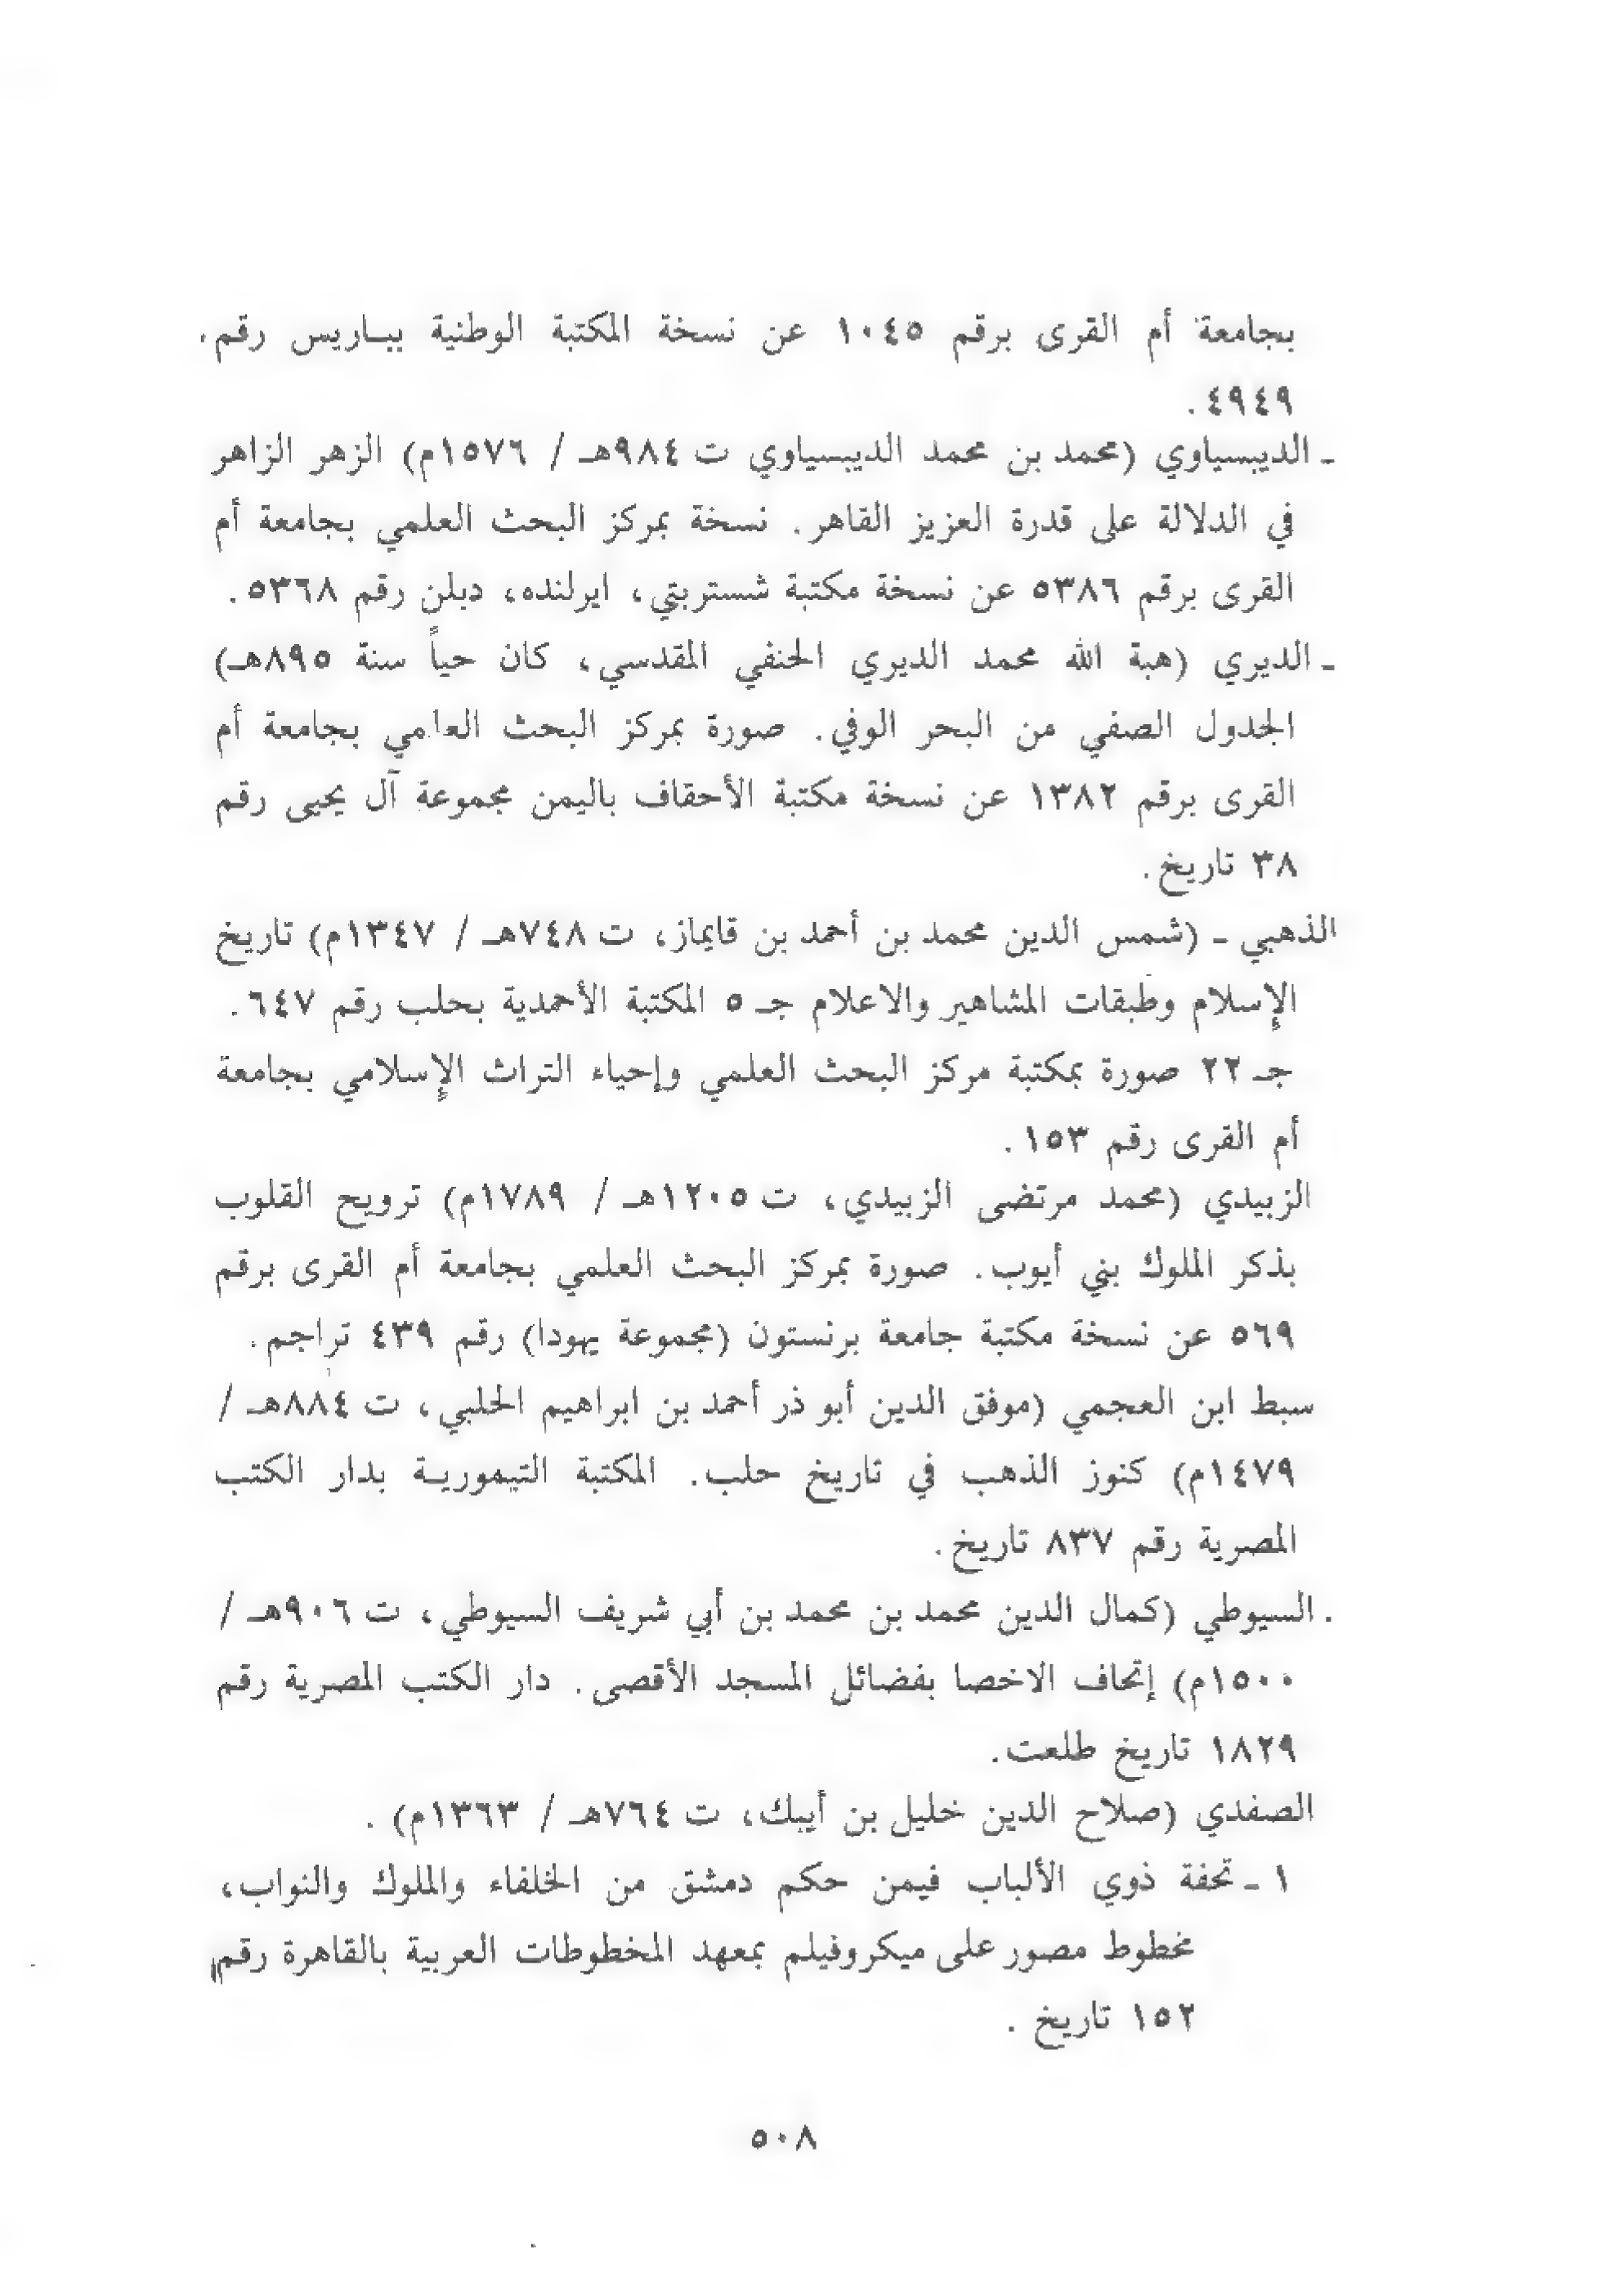 بجامعة أم القرى برقم ١٠٤٥ عن نسخة المكتبة الوطنية ببـاريس رقم.
٤٩٤٩ .
ـ الديبسياوي (محمد بن محمد الديبسياوي ت ٩٨٤هـ / ١٥٧٦م) الزهر الزاهر
في الدلالة على قدرة العزيز القاهر. نسخة بمركز البحث العلمي بجامعة أم
القرى برقم ٥٣٨٦ عن نسخة مكتبة شستربتي، ايرلنده، دبلن رقم ٥٣٦٨ .
ـ الديري (هبة الله محمد الديري الحنفي المقدسي، كان حياً سنة ٨٩٥هـ)
الجدول الصفي من البحر الوفي. صورة بمركز البحث العلمي بجامعة أم
القرى برقم ١٣٨٢ عن نسخة مكتبة الأحقاف باليمن مجموعة آل يحيى رقم
٣٨ تاريخ.
الذهبي ـ (شمس الدين محمد بن أحمد بن قايماز، ت ٧٤٨هـ / ١٣٤٧م) تاريخ
الإسلام وطبقات المشاهير والاعلام جـ ٥ المكتبة الأحمدية بحلب رقم ٦٤٧.
جـ ٢٢ صورة بمكتبة مركز البحث العلمي وإحياء التراث الإسلامي بجامعة
أم القرى رقم ١٥٣ .
الزبيدي (محمد مرتضى الزبيدي، ت ١٢٠٥هـ / ١٧٨٩م) ترويح القلوب
بذكر الملوك بني أيوب. صورة بمركز البحث العلمي بجامعة أم القرى برقم
٥٦٩ عن نسخة مكتبة جامعة برنستون (مجموعة يهودا) رقم ٤٣٩ تراجم.
سبط ابن العجمي (موفق الدين أبو ذر أحمد بن ابراهيم الحلبي، ت ٨٨٤هـ /
١٤٧٩م) كنوز الذهب في تاريخ حلب. المكتبة التيموريـة بدار الكتب
المصرية رقم ٨٣٧ تاريخ.
. السيوطي (كمال الدين محمد بن محمد بن أبي شريف السيوطي، ت ٩٠٦هـ /
١٥٠٠م) إتحاف الاخصا بفضائل المسجد الأقصى. دار الكتب المصرية رقم
١٨٢٩ تاريخ طلعت.
الصفدي (صلاح الدين خليل بن أيبك، ت ٧٦٤هـ / ١٣٦٣م) .
١ ـ تحفة ذوي الألباب فيمن حكم دمشق من الخلفاء والملوك والنواب،
مخطوط مصور على ميكروفيلم بمعهد المخطوطات العربية بالقاهرة رقم
١٥٢ تاريخ .
٥٠٨